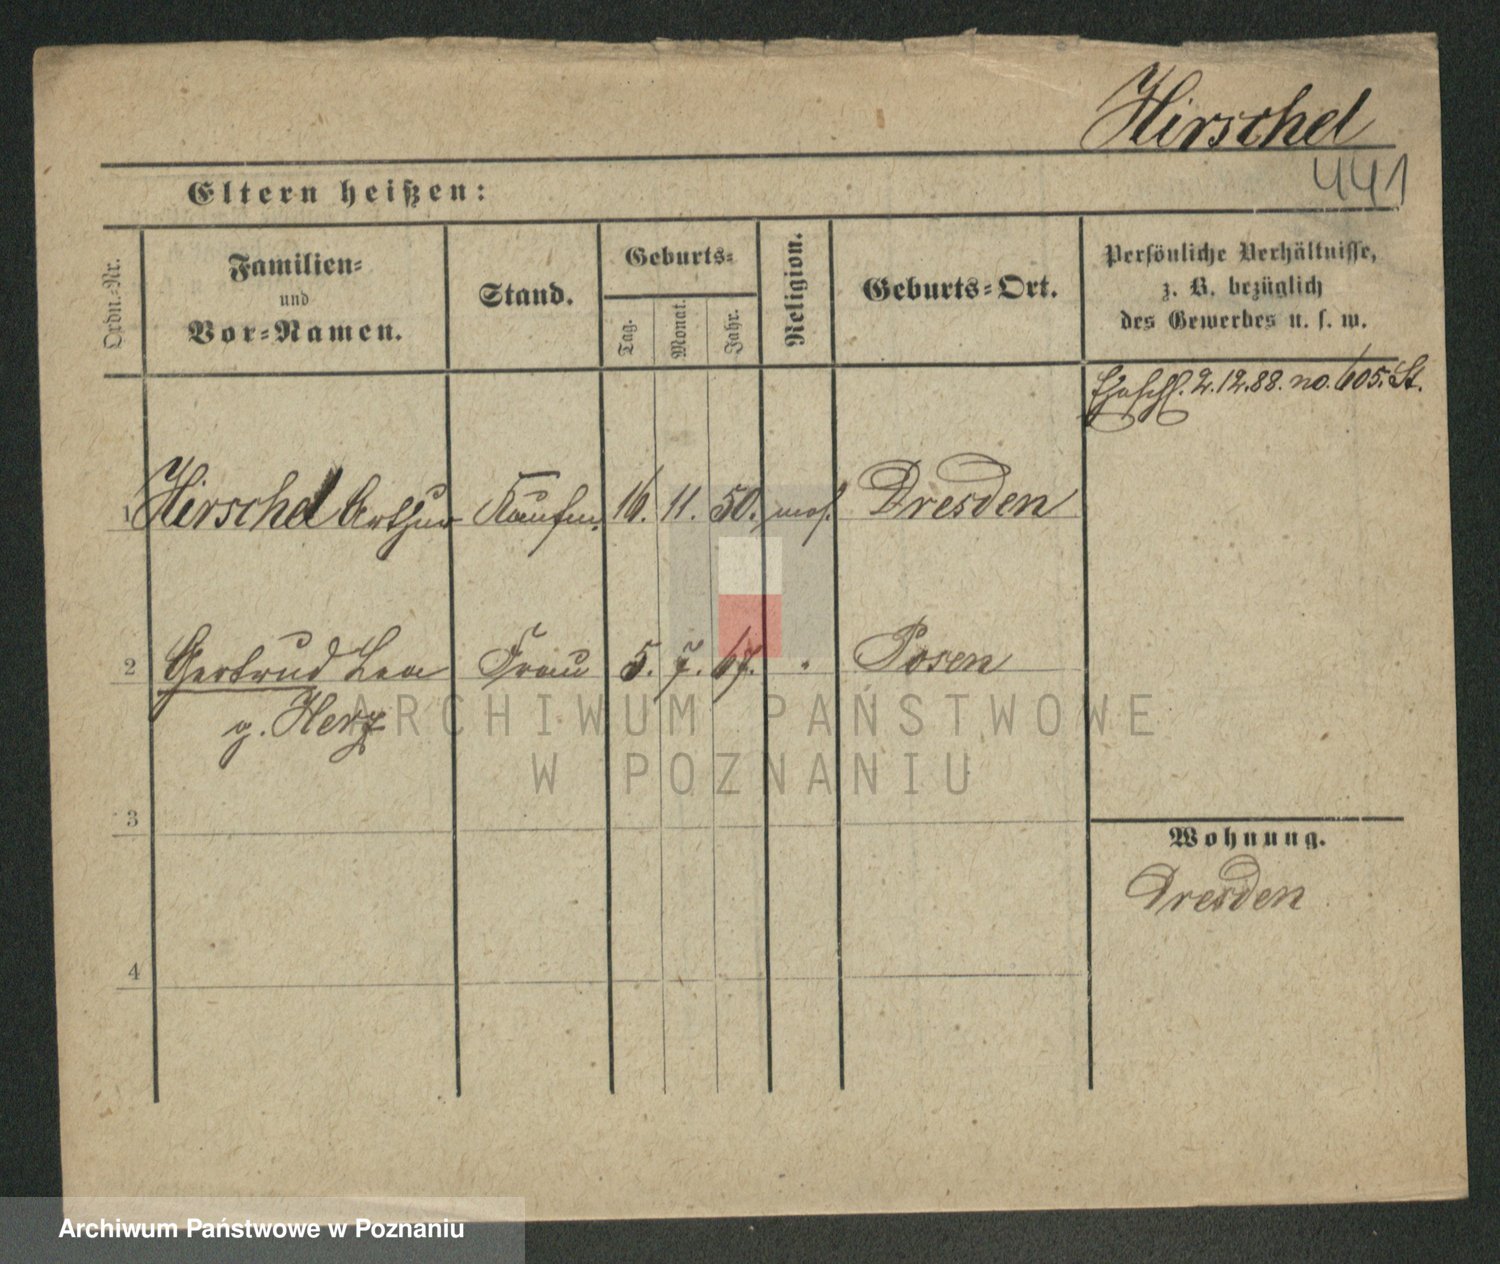 Hirschel
441
Eltern heißen:
Ordn.-Nr.
Familien-
und
Vor-Namen.
Stand.
Geburts-
Tag.
Monat.
Jahr.
Religion.
Geburts-Ort.
Persönliche Verhältnisse,
z. B. bezüglich
des Gewerbes u. s. w.
Ehschl. 2.12.88. no. 605. St.
1 Hirschel Arthur Kaufm. 16. 11. 50. mos. Dresden
2 Gertrud Lea Frau 5. 7. 67. " Posen
g. Herz
ARCHIWUM PAŃSTWOWE
W POZNANIU
3
Wohnung.
Dresden
4
Archiwum Państwowe w Poznaniu